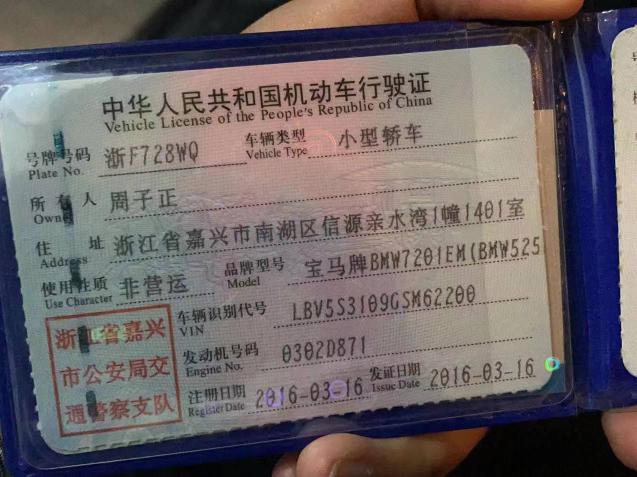 中华人民共和国机动车行驶证
Vehicle License of the People's Republic of China
号牌号码 浙F728WQ 车辆类型 小型轿车
Plate No. Vehicle Type
所有人 周子正
Owner
住址 浙江省嘉兴市南湖区信源亲水湾1幢1401室
Address
使用性质 非营运 品牌型号 宝马牌BMW7201EM(BMW525
Use Character Model
车辆识别代号 LBV5S3109GSM62200
VIN
发动机号码 0302D871
Engine No.
注册日期 2016-03-16 发证日期 2016-03-16
Register Date Issue Date
浙江省嘉兴
市公安局交
通警察支队